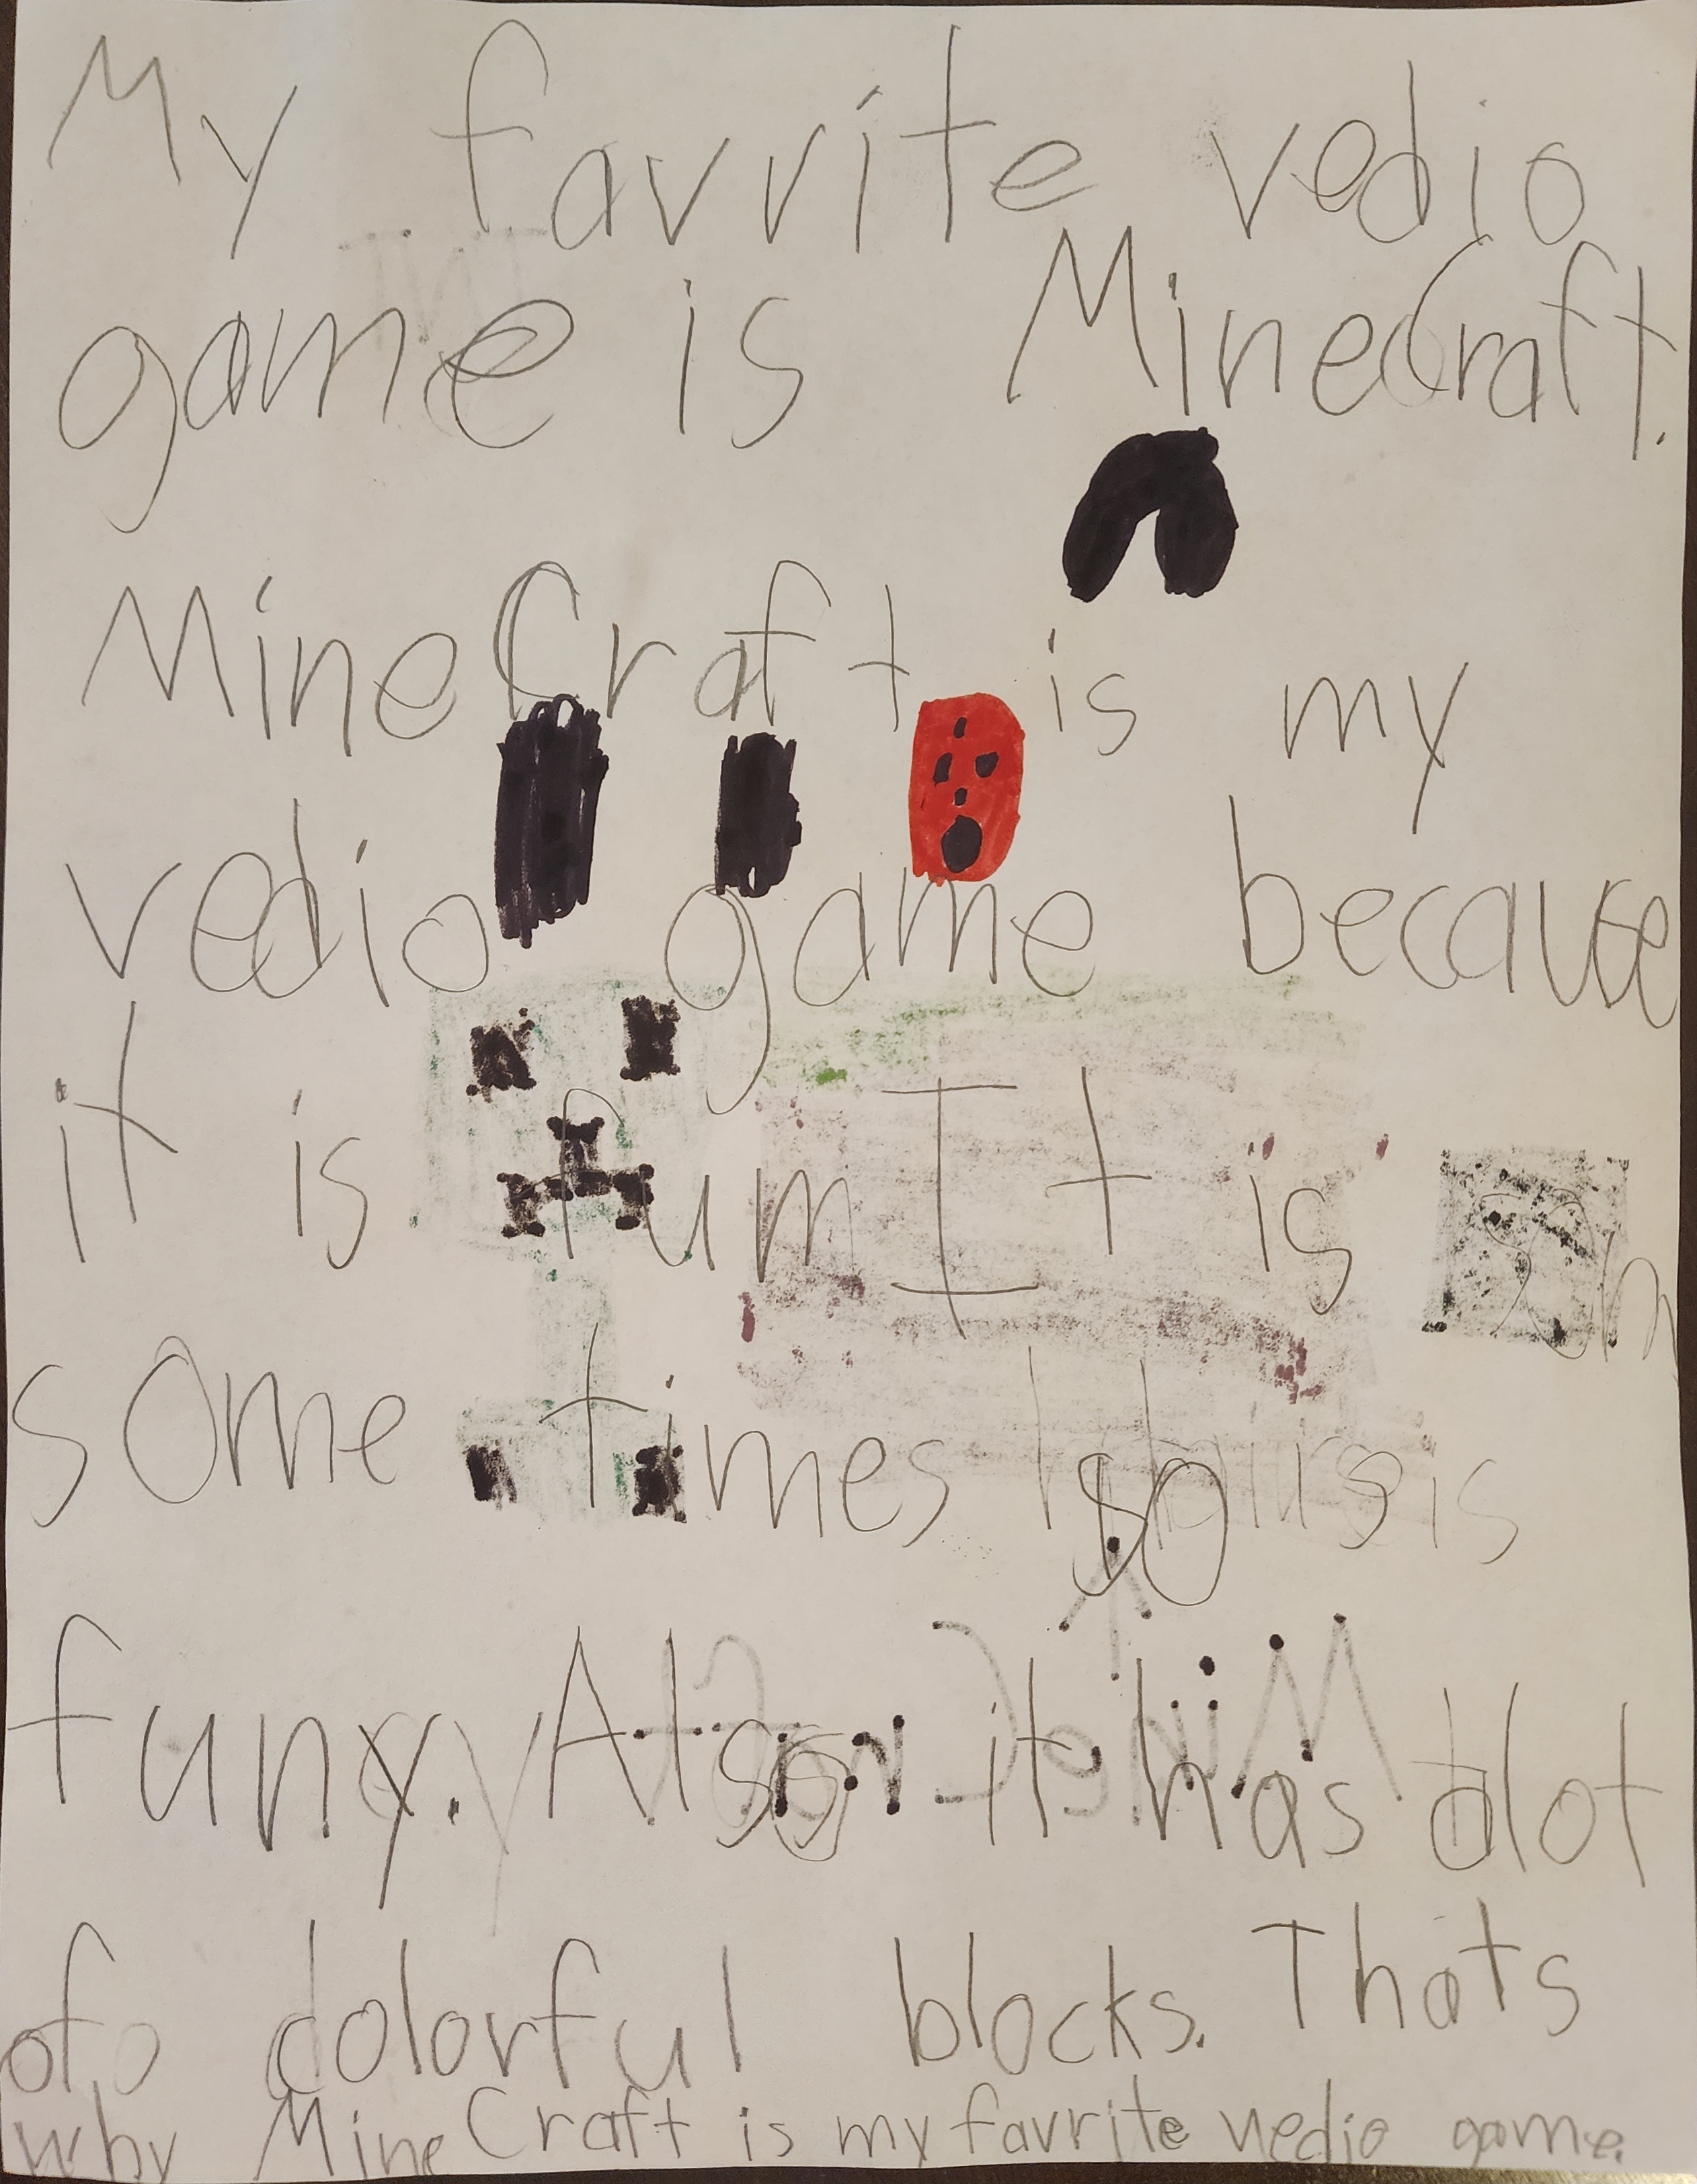 My favrite vedio
game is MineCraft.
MineCraft is my
vedio game because
it is fum It is
some times so is
funy. Also it has alot
of colorful blocks. Thats
why MineCraft is my favrite vedio game.